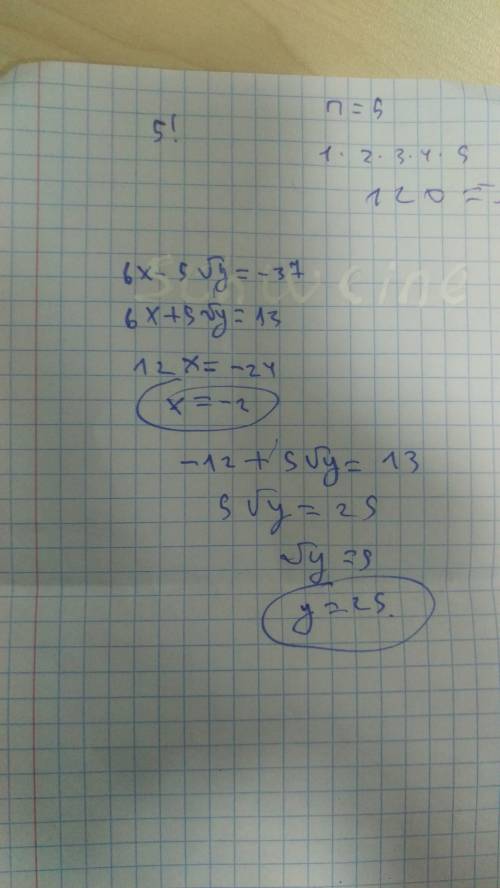 n = 5
5!
1 · 2 · 3 · 4 · 5
120 =
6x - 5√y = -37
6x + 5√y = 13
12x = -24
x = -2
-12 + 5√y = 13
5√y = 25
√y = 5
y = 25.